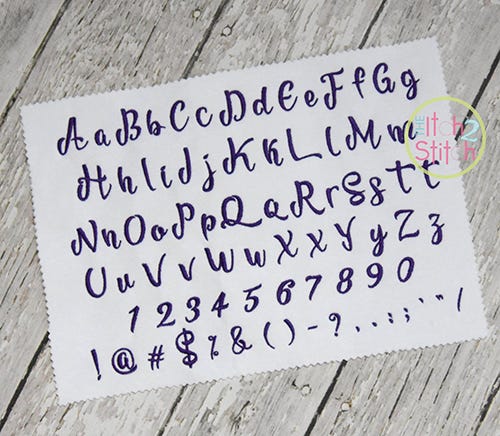 AaBbCcDdEeFfGg
HhIiJjKkLlMm
NnOoPpQqRrSsTt
UuVvWwXxYyZz
1234567890
!@#$%&()-?.,:;'"/
THE
Itch 2
Stitch